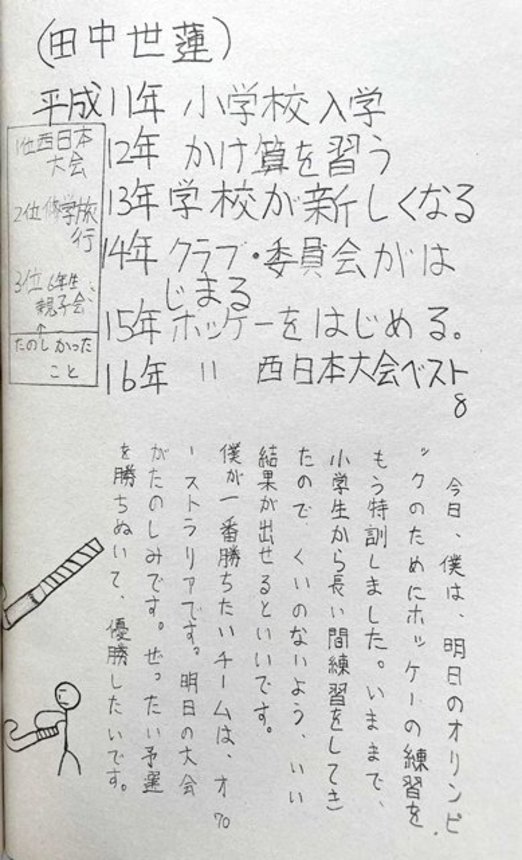 (田中世蓮)
平成11年 小学校入学
12年 かけ算を習う
13年 学校が新しくなる
14年 クラブ・委員会がは
じまる
15年 ホッケーをはじめる。
16年 〃 西日本大会ベスト
8
1位西日本
大会
2位修学旅
行
3位6年生
親子会
↑
たのしかった
こと
今日、僕は、明日のオリンピ
ックのためにホッケーの練習を
もう特訓しました。いままで、
小学生から長い間練習をしてき
たので くいのないよう、いい
結果が出せるといいです。
僕が一番勝ちたいチームは、オ
ーストラリアです。明日の大会
がたのしみです。ぜったい予選
を勝ちぬいて、優勝したいです。
70